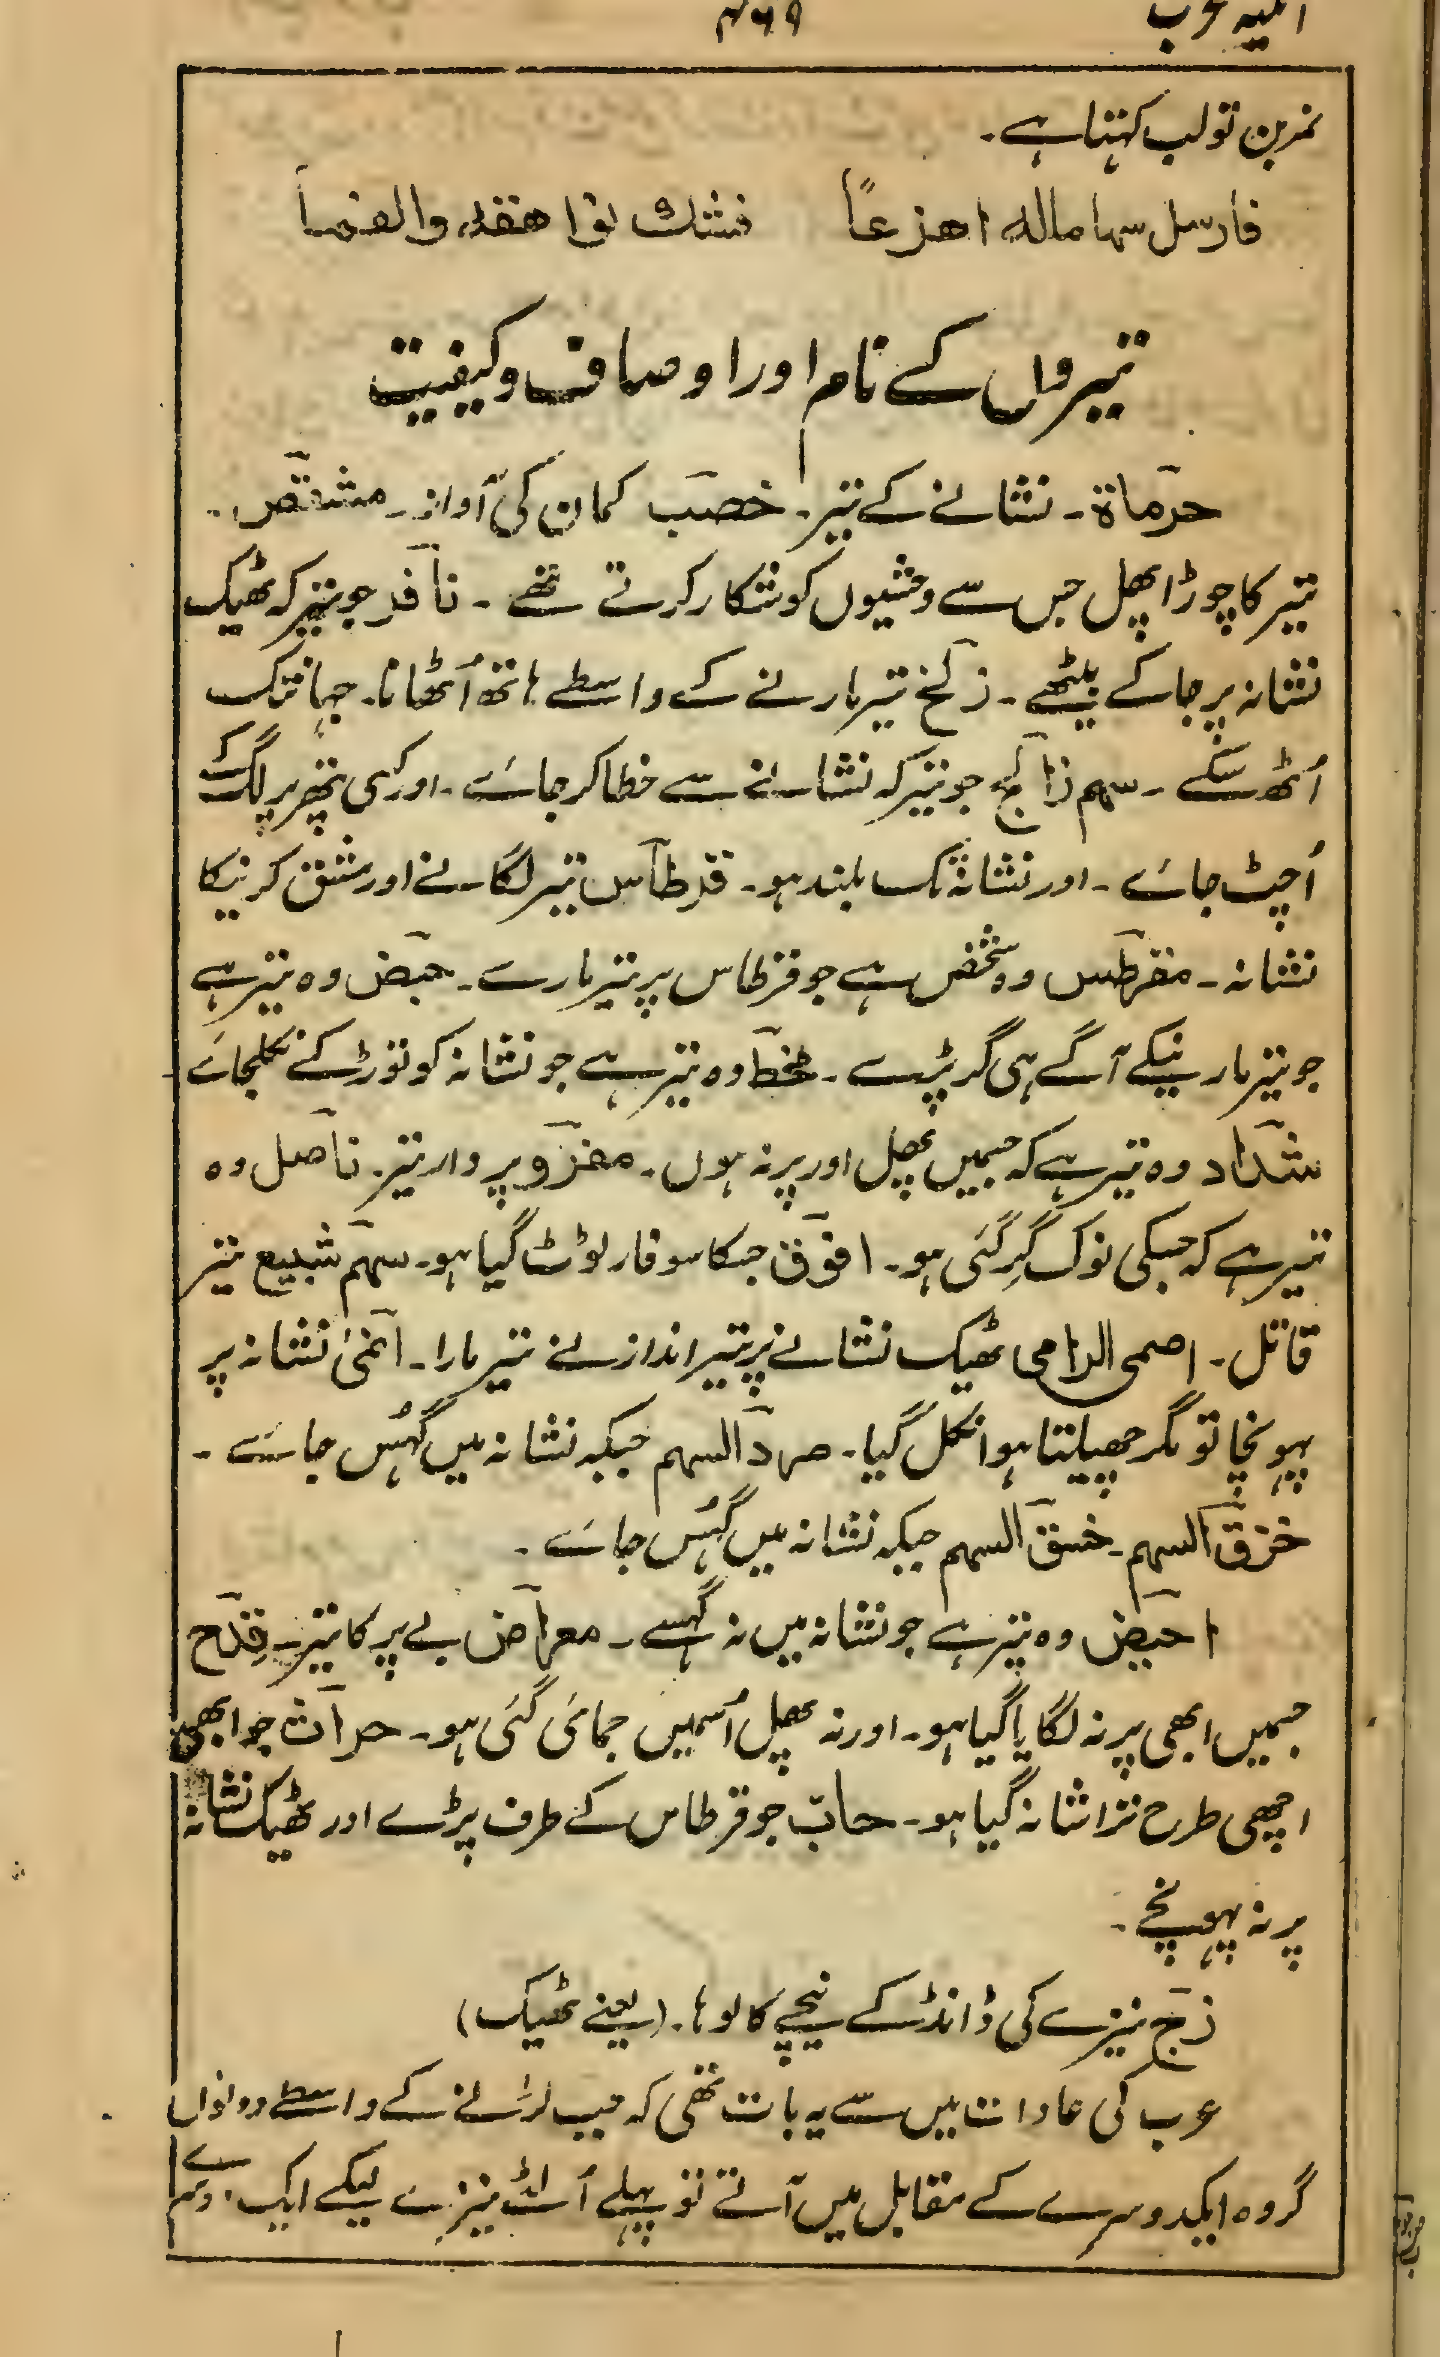 ۴۶۹
نمر بن تولب کہتا ہے۔
فارسل سهاما له اهزعاً فشك نواهقه والفماً
تیروں کے نام اور اوصاف وکیفیت
حرماة۔ نشانے کے تیر۔ خصب کمان کی آواز۔ مشقص۔
تیر کا چوڑا پھل جس سے وحشیوں کو شکار کرتے تھے۔ نافر جو تیر کہ ٹھیک
نشانہ پر جا کے بیٹھے۔ زلخ تیر مارنے کے واسطے ہاتھ اُٹھانا۔ جہانتک
اُٹھ سکے۔ سہم زالج جو تیر کہ نشانے سے خطا کر جائے۔ اور کسی پتھر پر لگ کے
اُچٹ جائے۔ اور نشانہ تک بلند ہو۔ قرطاس تیر لگانے اور مشق کرنیکا
نشانہ۔ مقرطس وہ شخص ہے جو قرطاس پر تیر مارے۔ حبض وہ تیر ہے
جو تیر مارنیکے آگے ہی گر پڑے۔ مخط وہ تیر ہے جو نشانہ کو توڑ کے نکلجائے
شداد وہ تیر ہے کہ جسمیں پھل اور پر نہ ہوں۔ مغزو پر وار تیر۔ ناصل وہ
تیر ہے کہ جسکی نوک گِر گئی ہو۔ افوق جسکا سوفار ٹوٹ گیا ہو۔ سہم شبیع تیر
قاتل۔ اصمی الرامی ٹھیک نشانے پر تیر انداز نے تیر مارا۔ انمیٰ نشانہ پر
پہونچا تو مگر چھیلتا ہوا نکل گیا۔ صرد السہم جبکہ نشانہ میں گھُس جائے۔
خزق السہم۔ خسق السہم جبکہ نشانہ میں گھُس جائے۔
احبض وہ تیر ہے جو نشانہ میں نہ گھسے۔ معراض بے پر کا تیر۔ قِدح
جسمیں ابھی پر نہ لگایا گیا ہو۔ اور نہ پھل اُسمیں جمائی گئی ہو۔ حراث جو ابھی
اچھی طرح تراشا نہ گیا ہو۔ حابّ جو قرطاس کے طرف پڑے اور ٹھیک نشانہ
پر نہ پہونچے۔
زج نیزے کی ڈانڈ کے نیچے کا لوہا۔ (یعنے ٹھیک)
عرب کی عادات میں سے یہ بات تھی کہ جب لڑنے کے واسطے دونوں
گروہ ایکدوسرے کے مقابل میں آتے تو پہلے اُلٹے نیزے لیکے ایک دوسرے